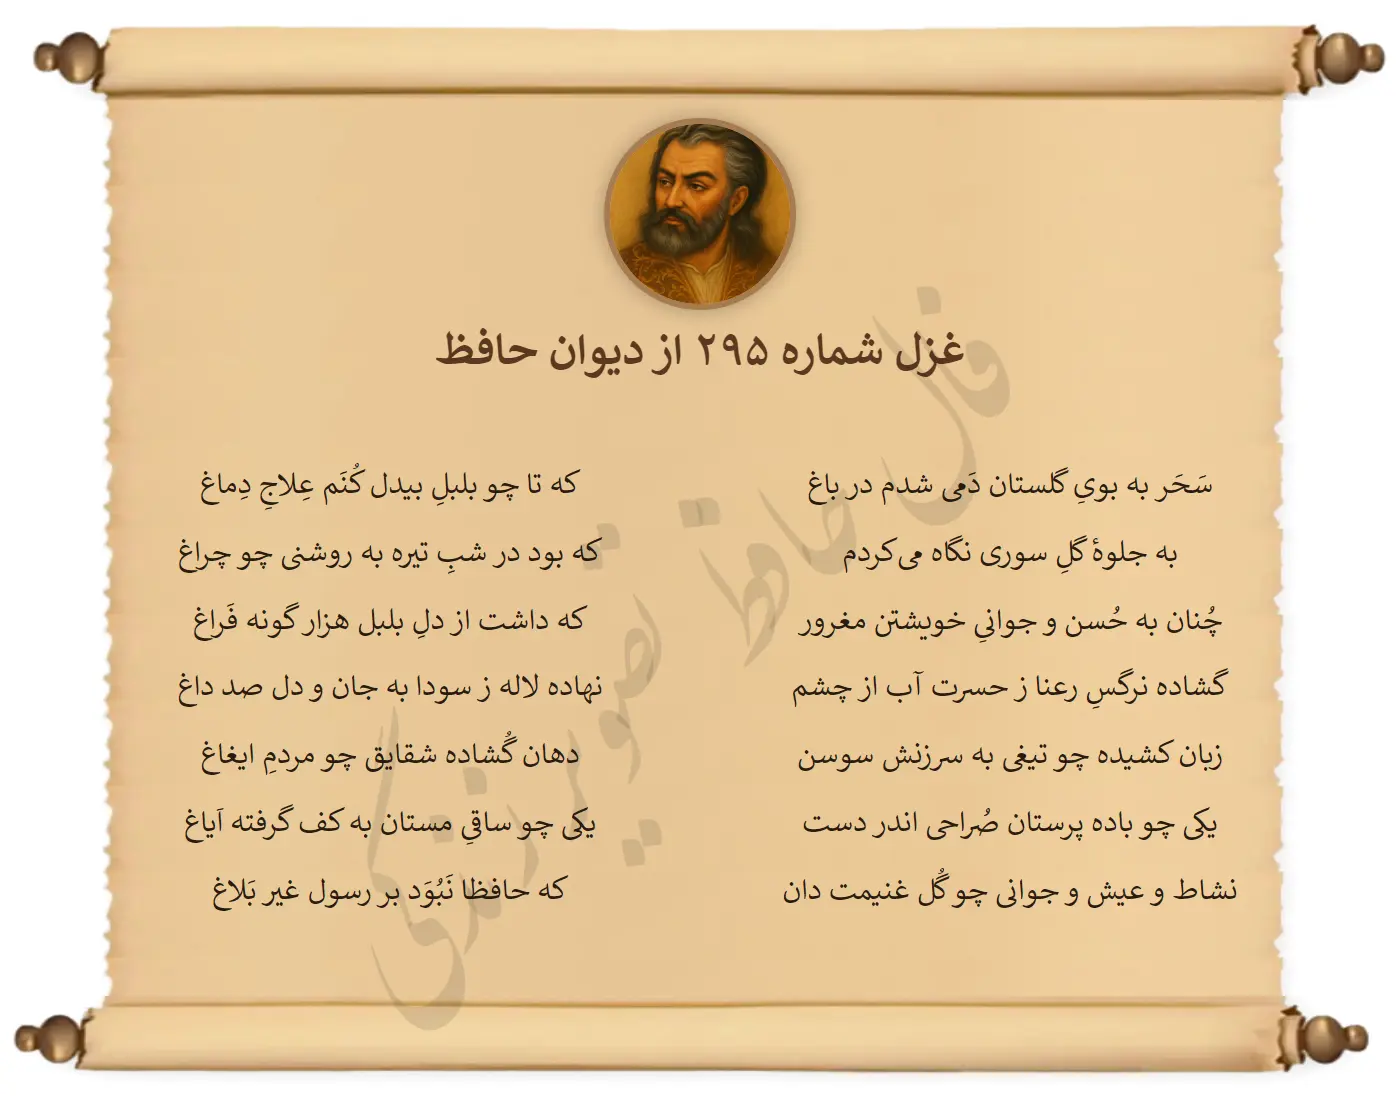 غزل شماره ۲۹۵ از دیوان حافظ
سَحَر به بویِ گلستان دَمی شدم در باغ
که تا چو بلبلِ بیدل کُنَم عِلاجِ دِماغ
به جلوهٔ گلِ سوری نگاه می‌کردم
که بود در شبِ تیره به روشنی چو چراغ
چُنان به حُسن و جوانیِ خویشتن مغرور
که داشت از دلِ بلبل هزار گونه فَراغ
گشاده نرگسِ رعنا ز حسرت آب از چشم
نهاده لاله ز سودا به جان و دل صد داغ
زبان کشیده چو تیغی به سرزنش سوسن
دهان گُشاده شقایق چو مردمِ ایغاغ
یکی چو باده پرستان صُراحی اندر دست
یکی چو ساقیِ مستان به کف گرفته اَیاغ
نشاط و عیش و جوانی چو گُل غنیمت دان
که حافظا نَبُوَد بر رسول غیر بَلاغ
فال حافظ تصویر زندگی